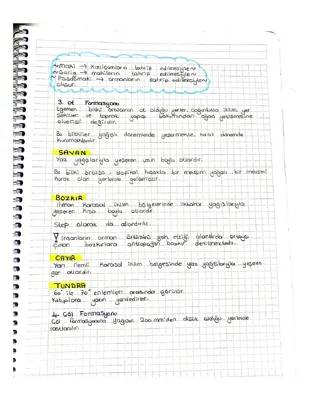 Maki → Kızılçamların tahrip edilmesiyle
Garig → makilerin tahrip edilmesiyle
Psödomaki → ormanların tahrip edilmesiyle
oluşur.
3. Ot Formasyonu
Egemen bitki örtüsünün ot olduğu yerler, çoğunlukla iklim, yer
şekilleri ve toprak yapısı bakımından ağaç yetişmesine
elverişli değildir.
Bu bitkiler yağışlı dönemlerde yeşermekte, kurak dönemde
kurumaktadır.
SAVAN
Yaz yağışlarıyla yeşeren uzun boylu otlardır.
Bu bitki örtüsü, tropikal kuşakta bir mevsim yağışlı, bir mevsim
kurak olan yerlerde gelişmiştir.
BOZKIR
Ilıman karasal iklim bölgelerinde ilkbahar yağışlarıyla
yeşeren kısa boylu otlardır.
Step olarak da adlandırılır.
İnsanların orman örtüsünü yok ettiği alanlarda ortaya
çıkan bozkırlara antropojen bozkır denilmektedir.
ÇAYIR
Yarı nemli karasal iklim bölgesinde yaz yağışlarıyla yeşeren
gür otlardır.
TUNDRA
60° ile 70° enlemleri arasında görülür.
Kutuplara yakın yerlerdedir.
4. Çöl Formasyonu
Çöl formasyonu yağışın 200 mm'den düşük olduğu yerlerde
rastlanılır.